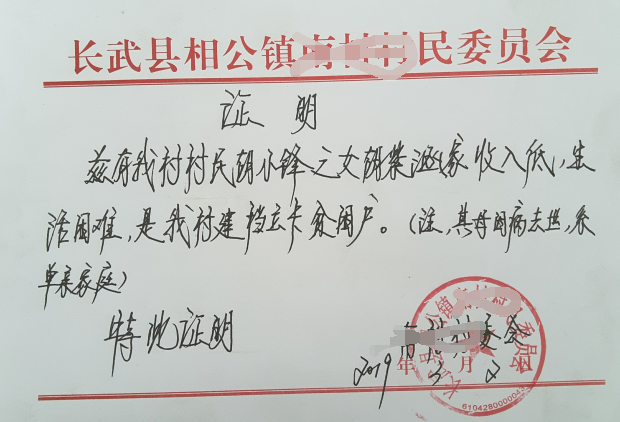 长武县相公镇南村村民委员会
证 明
兹有我村村民胡小锋之女胡紫涵家收入低,生
活困难,是我村建档立卡贫困户。(注,其母因病去世,系
单亲家庭)
特此证明
南村委会
2019年3月2
6104280000043